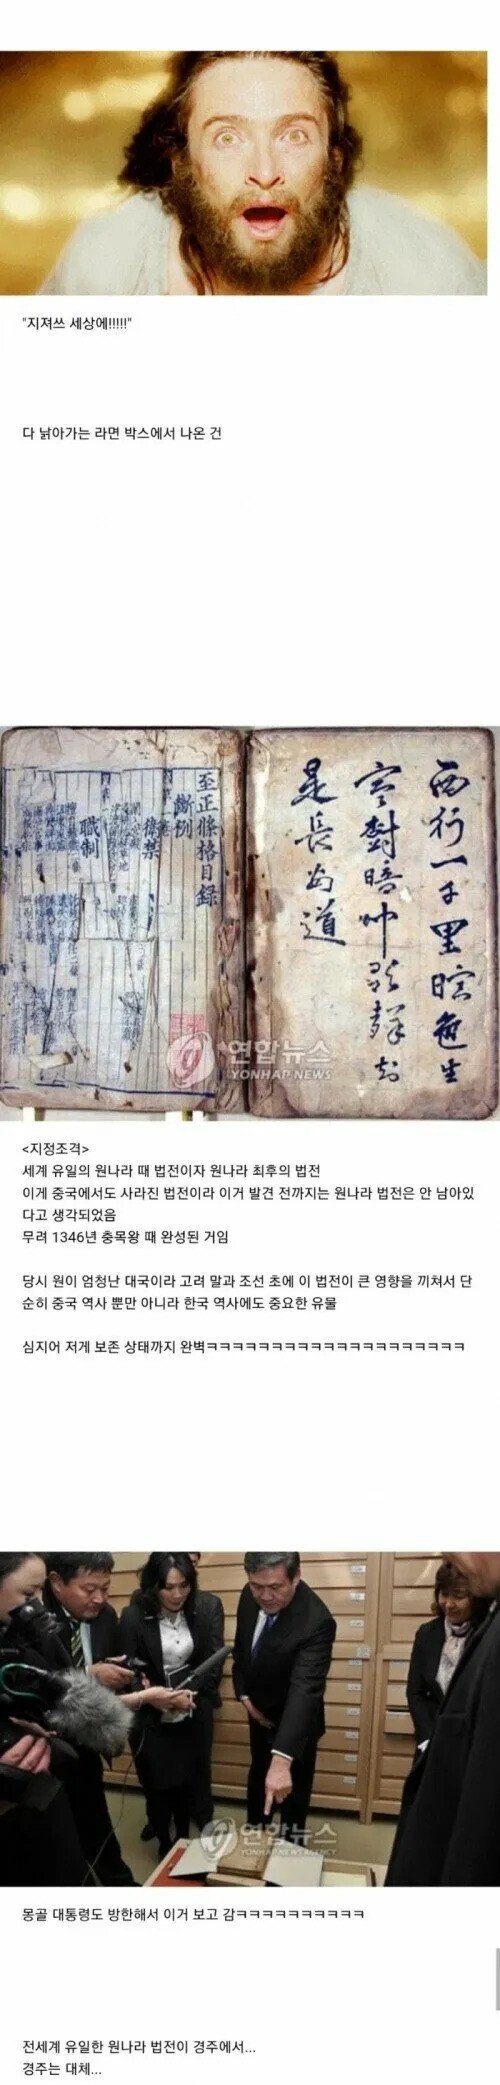 "지져쓰 세상에!!!!!"
다 낡아가는 라면 박스에서 나온 건
至正條格目錄
斷例
衛禁
職制
西行一千里
是長安道
연합뉴스
YONHAP NEWS
<지정조격>
세계 유일의 원나라 때 법전이자 원나라 최후의 법전
이게 중국에서도 사라진 법전이라 이거 발견 전까지는 원나라 법전은 안 남아있
다고 생각되었음
무려 1346년 충목왕 때 완성된 거임
당시 원이 엄청난 대국이라 고려 말과 조선 초에 이 법전이 큰 영향을 끼쳐서 단
순히 중국 역사 뿐만 아니라 한국 역사에도 중요한 유물
심지어 저게 보존 상태까지 완벽ㅋㅋㅋㅋㅋㅋㅋㅋㅋㅋㅋㅋㅋㅋㅋㅋㅋㅋㅋㅋ
연합뉴스
YONHAP NEWS AGENCY
몽골 대통령도 방한해서 이거 보고 감ㅋㅋㅋㅋㅋㅋㅋㅋㅋㅋ
전세계 유일한 원나라 법전이 경주에서...
경주는 대체...